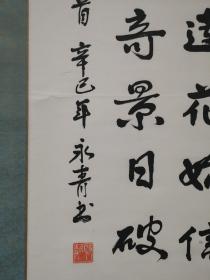 花始信
奇景日破
首 辛巳年 永青书